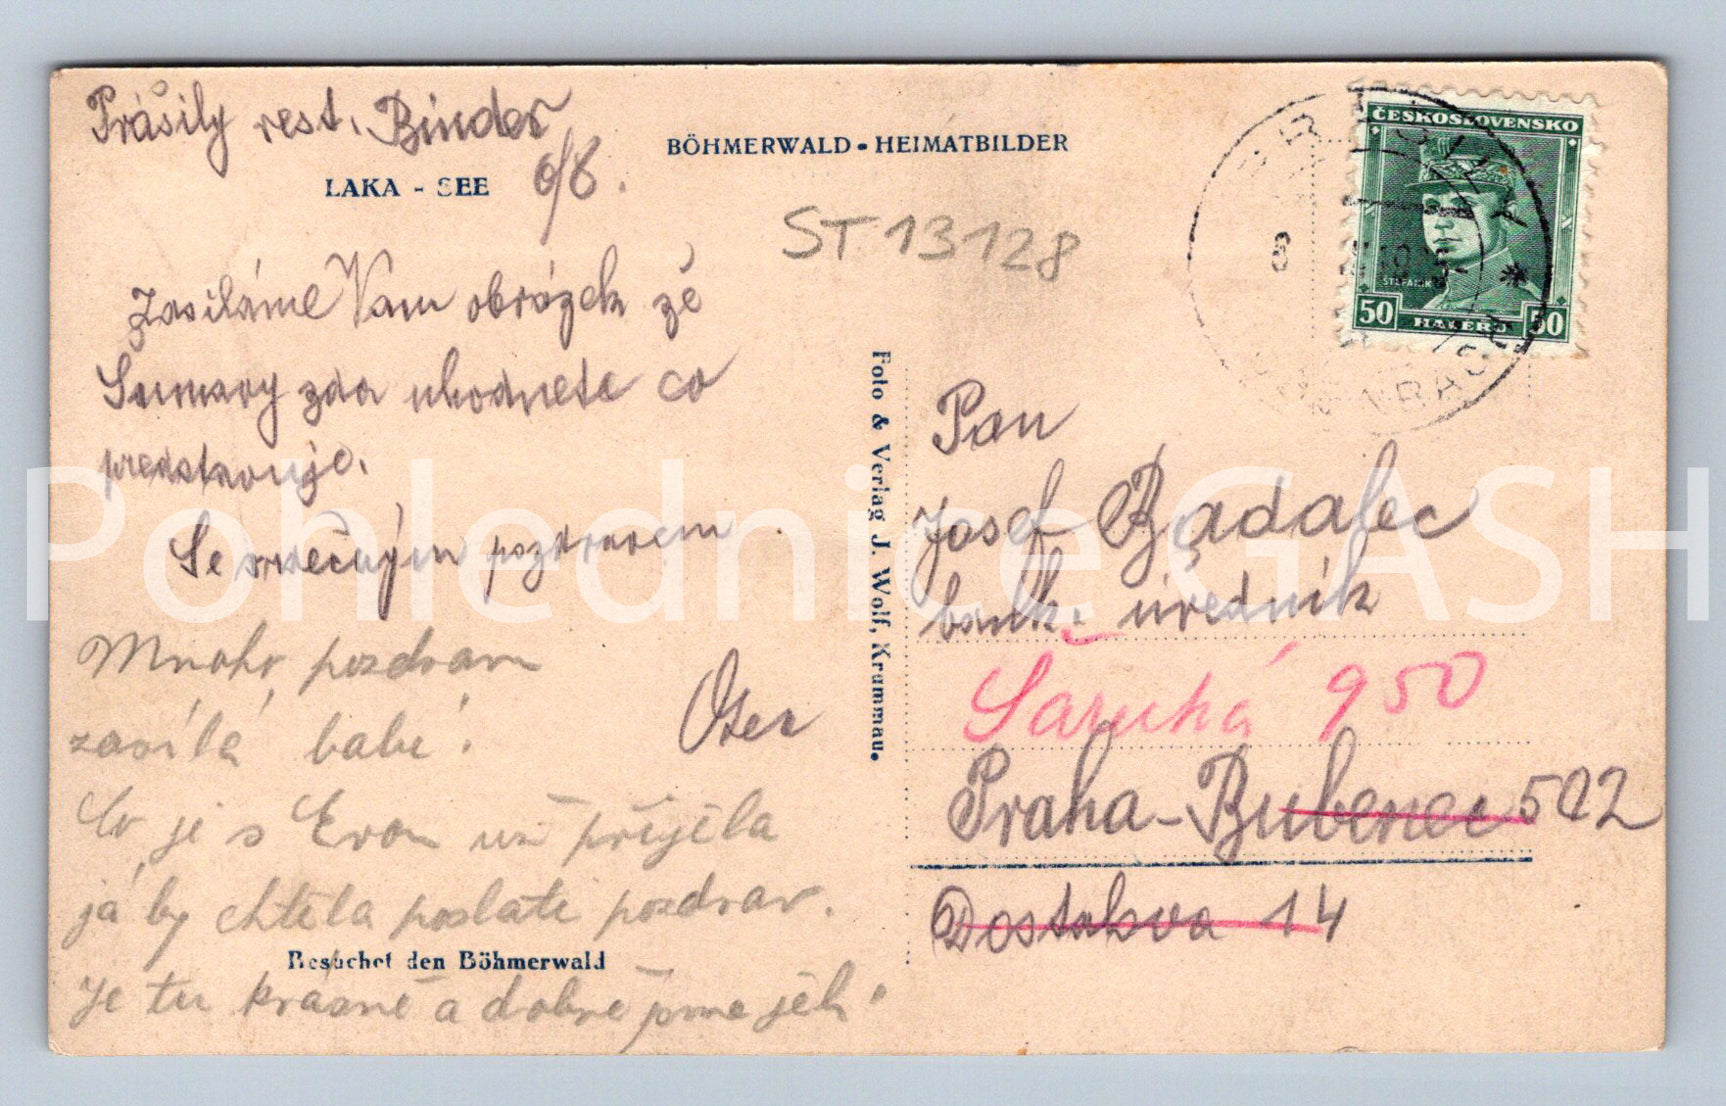 Prášily rest. Binder
6/8.
LAKA - SEE
BÖHMERWALD - HEIMATBILDER
ST 13128
ČESKOSLOVENSKO
ŠTEFÁNIK
50 HALÉŘŮ 50
8
Zasíláme Vam obrázek ze
Šumavy zda uhodnete co
predstavuje.
Se srdečným pozdravem
Mnoho pozdravů
zasílá
Co je s Evou už přijela
já by chtěla poslati pozdrav.
Besuchet den Böhmerwald
Je tu krásně a dobře jsme jeli.
Foto & Verlag J. Wolf, Krummau.
Pan
Josef Badalec
bank. úředník
Šárecká 950
Praha-Bubeneč 502
Dostalova 14
Pohlednice GASH